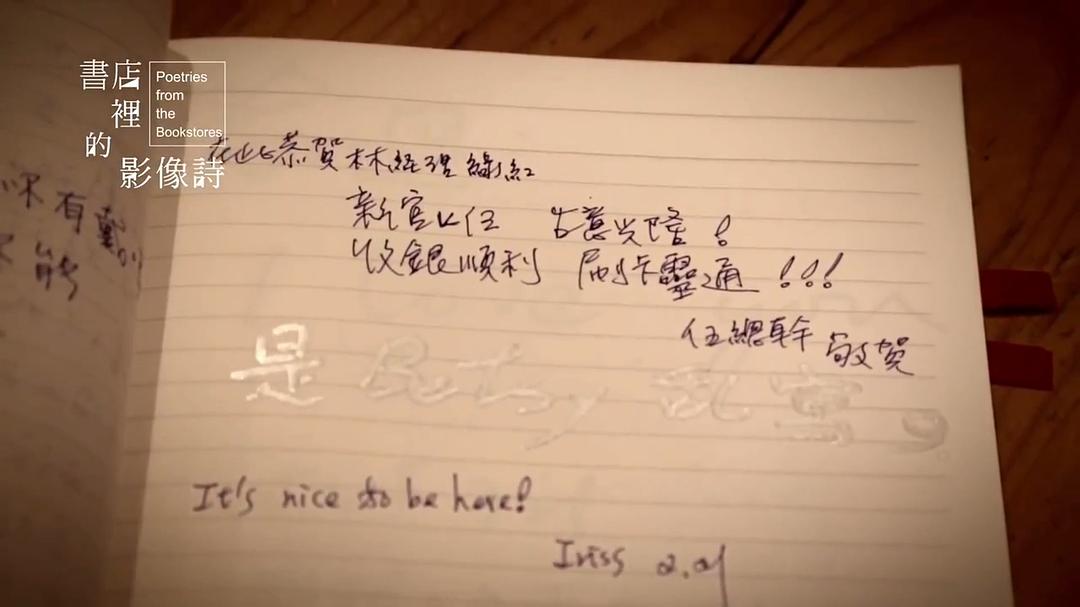 書店
裡
的
影像詩
Poetries
from
the
Bookstores
在此恭賀林經理緣紅
新官上任 生意興隆！
收銀順利 刷卡靈通！！！
伍總幹 敬賀
是Betsy 亂寫。
It's nice to be here!
Iriss
有
能